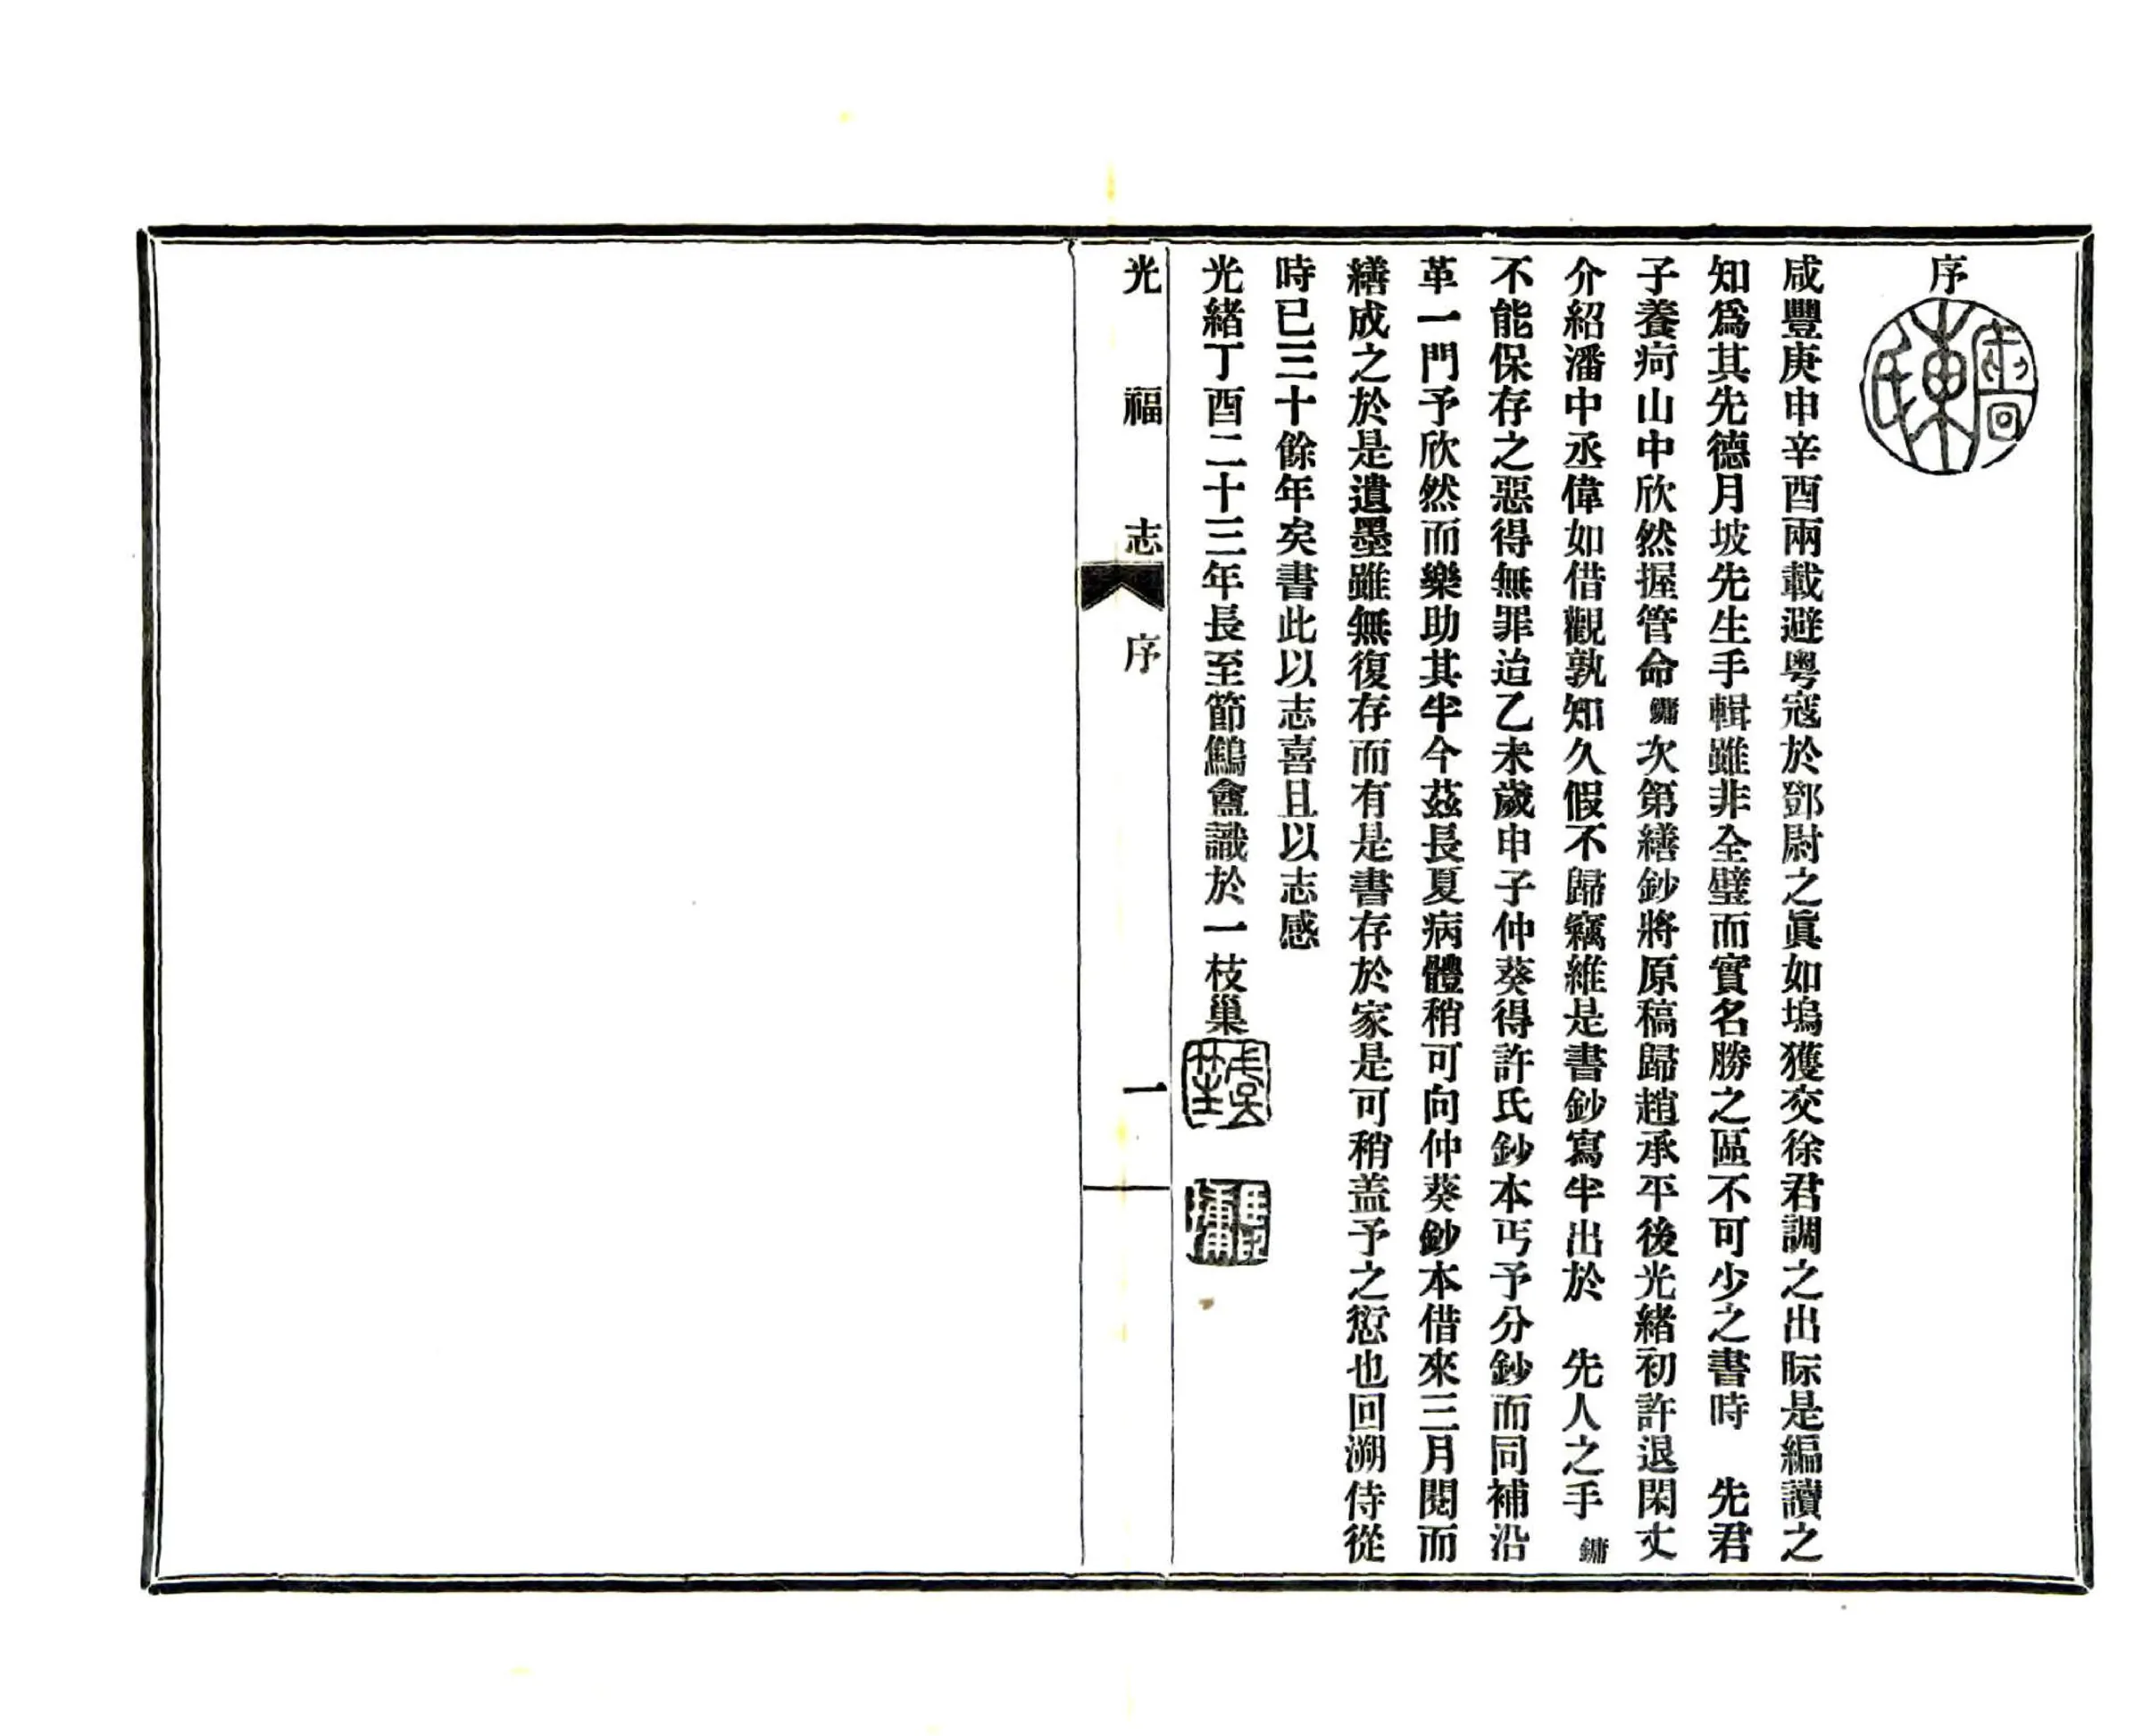 序
咸豐庚申辛酉兩載避粵寇於鄧尉之眞如塢獲交徐君調之出眎是編讀之
知爲其先德月坡先生手輯雖非全璧而實名勝之區不可少之書時　先君
子養疴山中欣然握管命鏞次第繕鈔將原稿歸趙承平後光緒初許退閑丈
介紹潘中丞偉如借觀孰知久假不歸竊維是書鈔寫半出於　先人之手鏞
不能保存之惡得無罪迨乙未歲申子仲葵得許氏鈔本丐予分鈔而同補沿
革一門予欣然而樂助其半今茲長夏病體稍可向仲葵鈔本借來三月閱而
繕成之於是遺墨雖無復存而有是書存於家是可稍盖予之愆也回溯侍從
時已三十餘年矣書此以志喜且以志感
光緒丁酉二十三年長至節鷦盦識於一枝巢
光福志
序
一